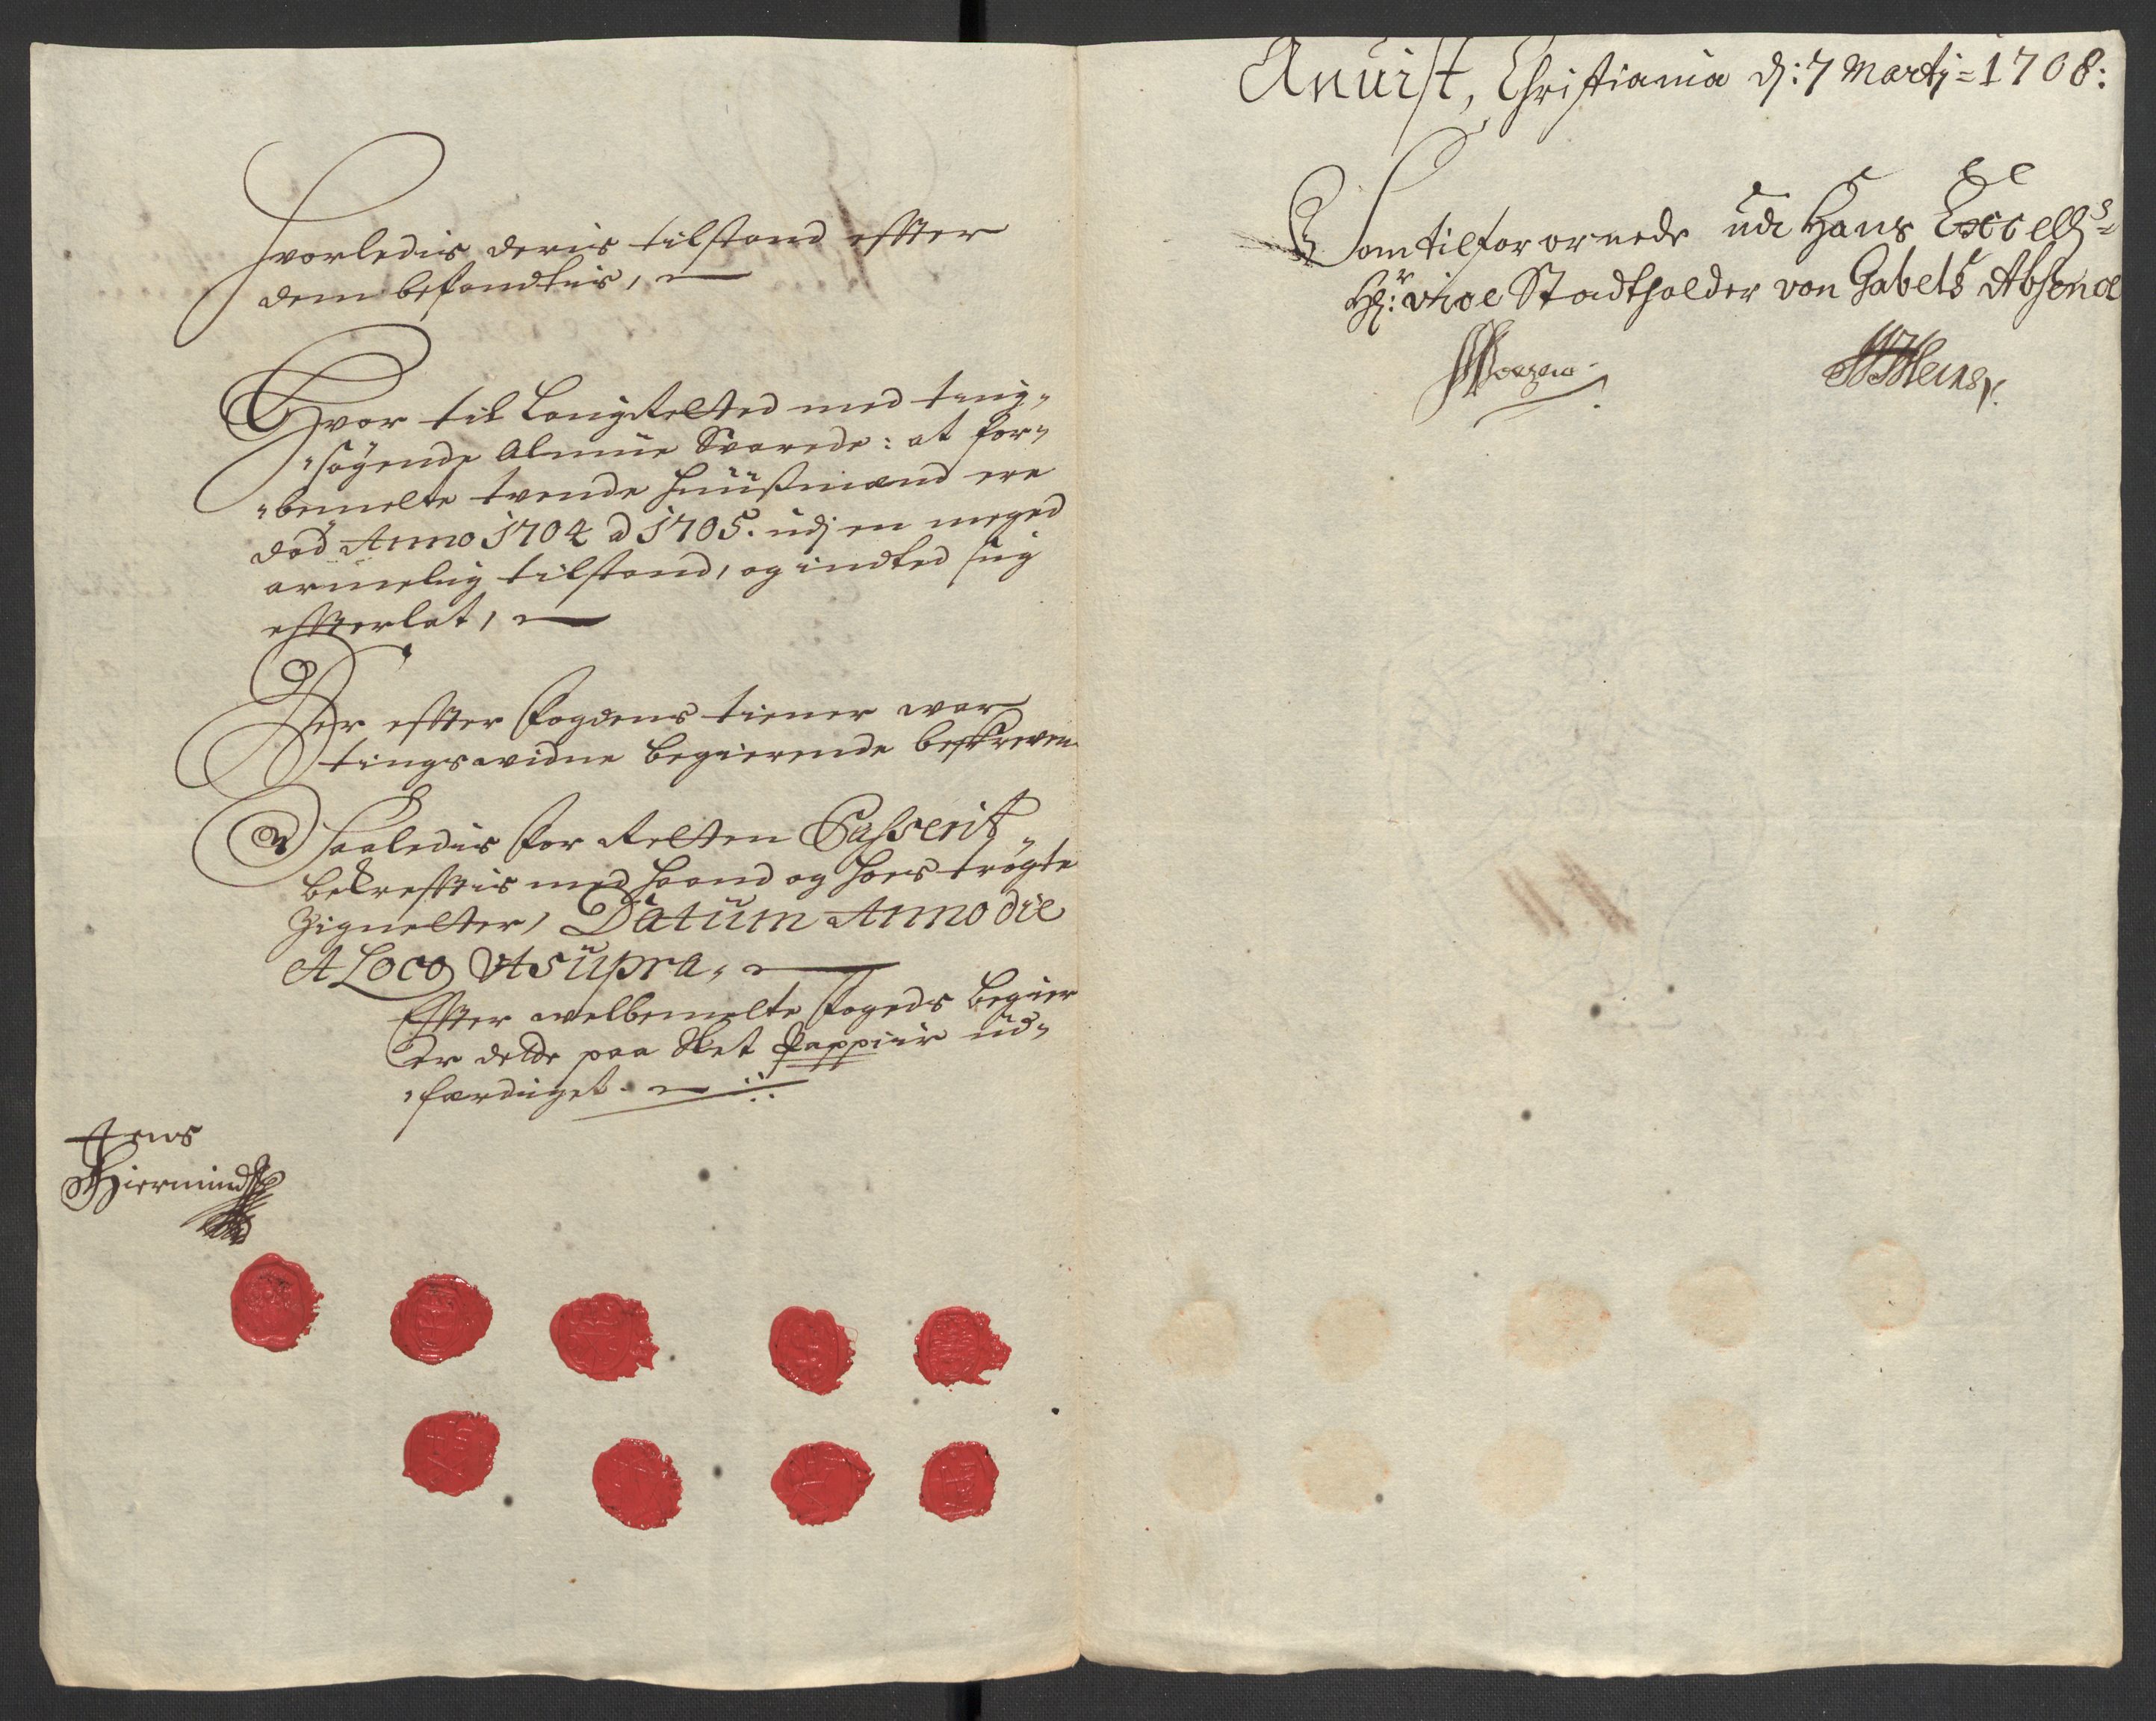 Hvorledis deris tilstand effter
dem befandtis,
Hvor til Laugretted med ting„
„søgende Almue Svarede: at for„
„bemelte tvende huusmænd ere
død Anno 1704 a 1705. udj en meged
armelig tilstand, og indted sig
effterlat,
Her effter fogdens tiener war
tingswidne begierende beskrewen
Saaledis for Retten Passerit
bekrefftis med haand og hoes trøgte
Zignetter, Datum Anno die
et Loco Ut supra,
Effter welbemelte fogeds begier
er dette paa slet Pappiir ud„
„færdiget.
Jens
Anvist, Christiania d: 7 Martj = 1708:
Som tilforornede udi Hans Excells=
Hr: vice Stadtholder von Gabels Absence